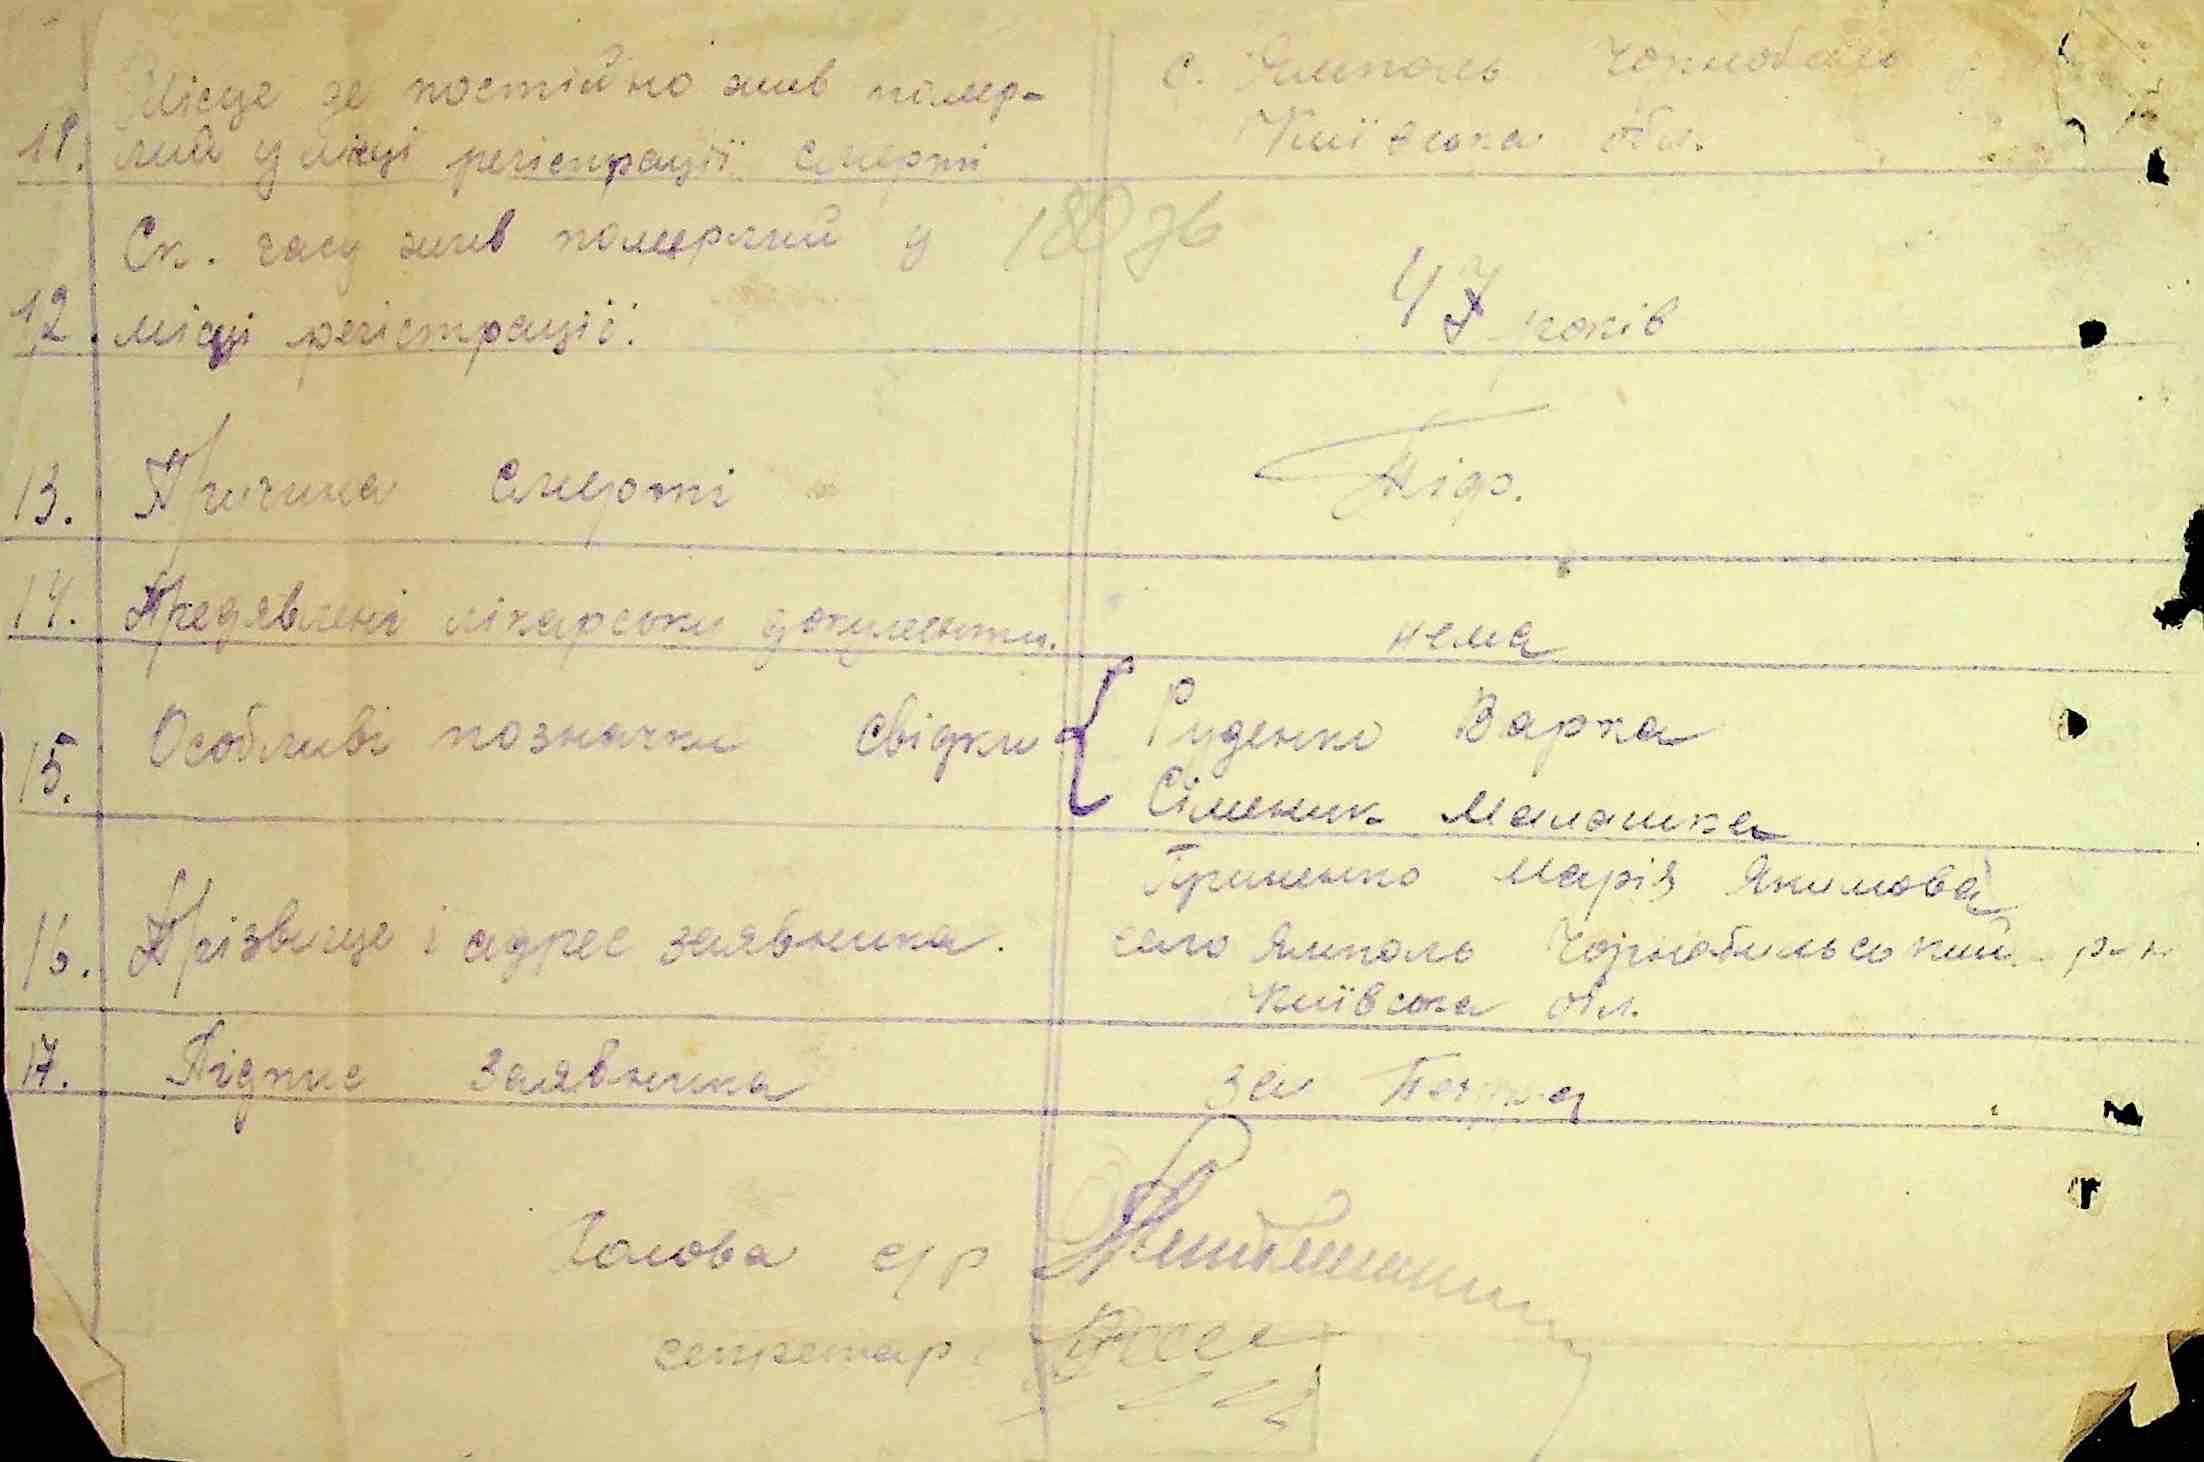 11. Місце де постійно жив помер-
лий у місці регістрації смерті
с. Ямполь Чорнобиль
Київська обл.
Ск. часу жив померлий у
12. місці регістрації.
47 років
13. Причина смерті
Тіф.
14. Предявлені лікарськи документи.
нема
15. Особливі позначки свідки
Руденко Варка
Сіменик Малашка
16. Прізвище і адрес заявника.
Гриненко Марія Якимова
село Ямполь Чорнобильський р-н
Київська обл.
17. Підпис заявника
за
Голова с/р
секретар